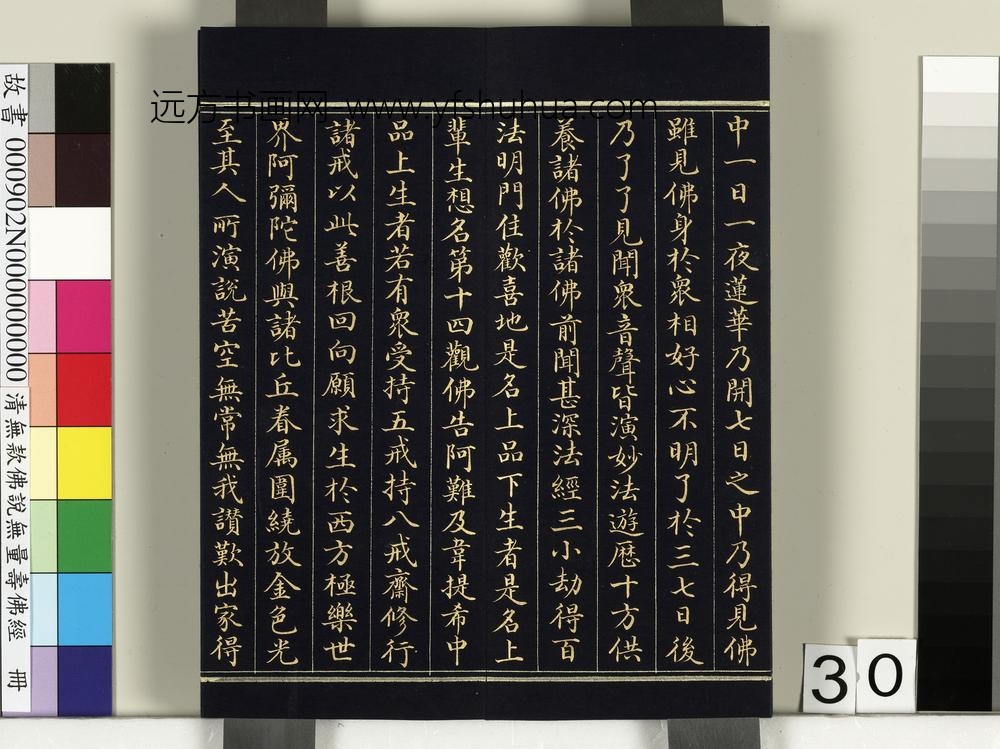 中一日一夜蓮華乃開七日之中乃得見佛
雖見佛身於衆相好心不明了於三七日後
乃了了見聞衆音聲皆演妙法遊歷十方供
養諸佛於諸佛前聞甚深法經三小劫得百
法明門住歡喜地是名上品下生者是名上
輩生想名第十四觀佛告阿難及韋提希中
品上生者若有衆受持五戒持八戒齋修行
諸戒以此善根回向願求生於西方極樂世
界阿彌陀佛與諸比丘眷属圍繞放金色光
至其人所演說苦空無常無我讃歎出家得
远方书画网 www.yfshuhua.com
故書 000902N000000000
清無款佛說無量壽佛經 冊
30